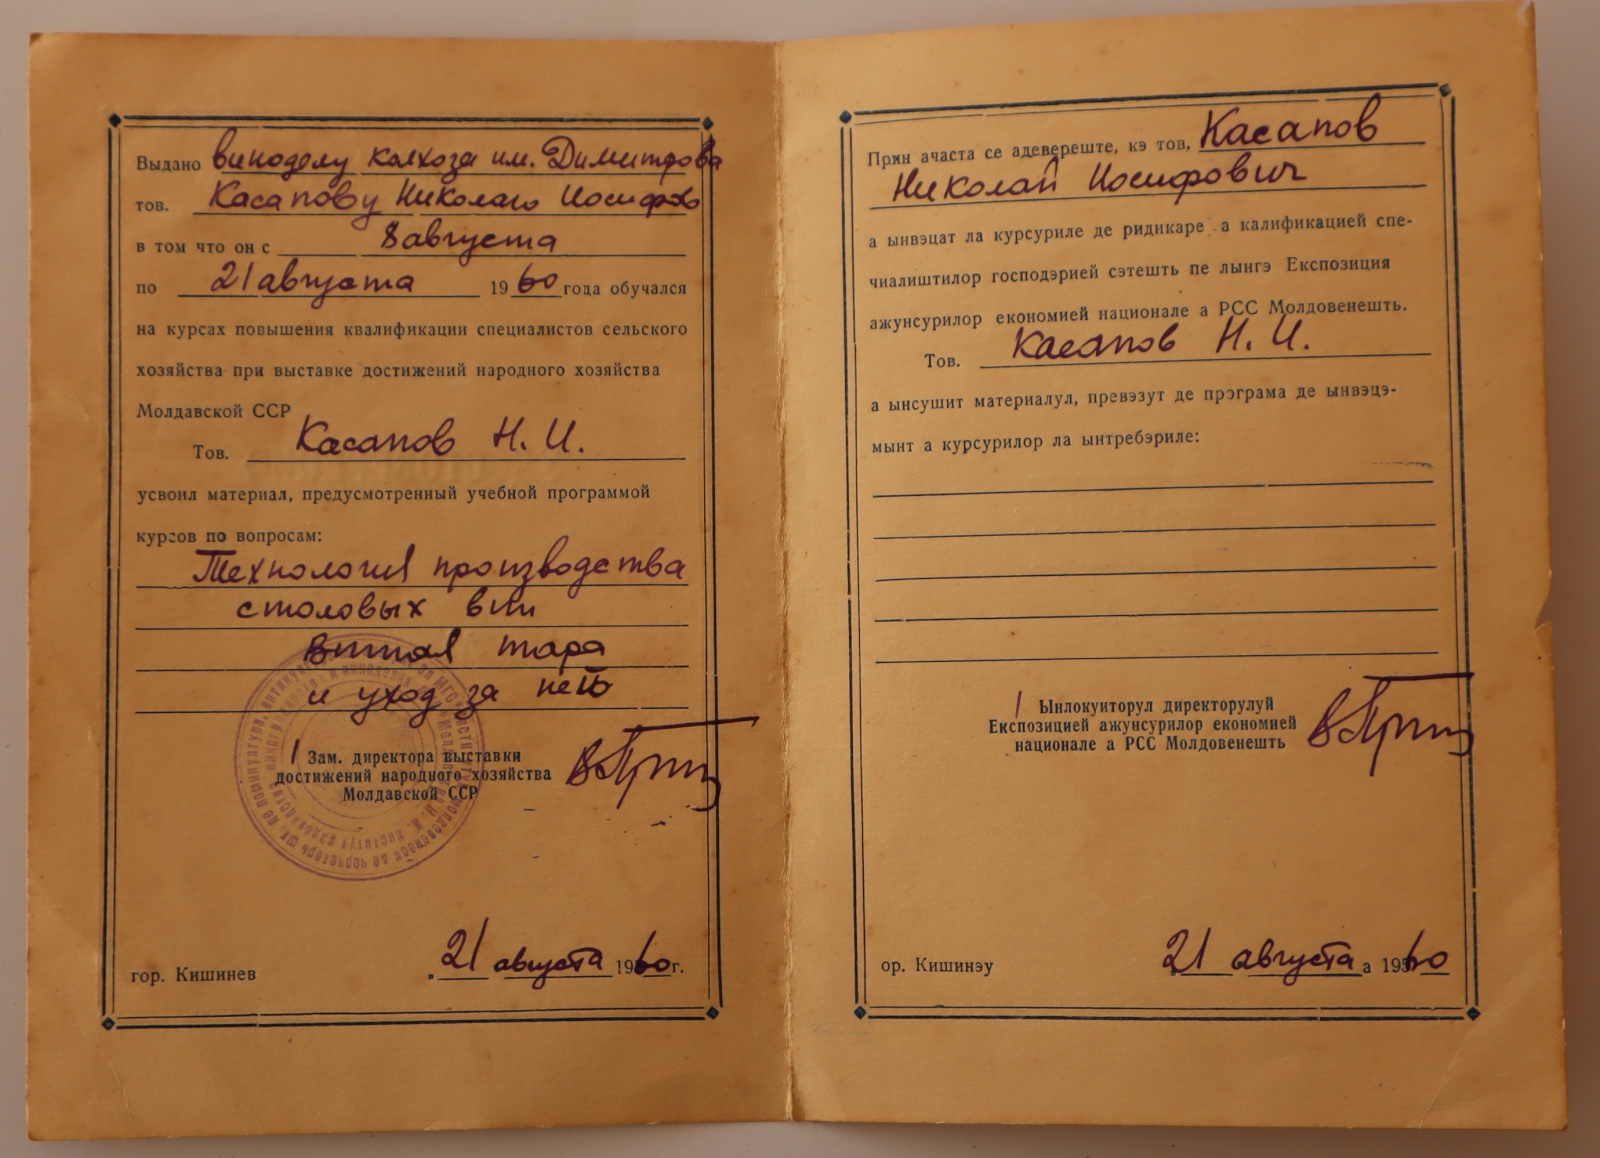 Выдано виноделу колхоза им. Димитрова
тов. Касапову Николаю Иосифов
в том что он с 8 августа
по 21 августа 1960 года обучался
на курсах повышения квалификации специалистов сельского
хозяйства при выставке достижений народного хозяйства
Молдавской ССР
Тов. Касапов Н. И.
усвоил материал, предусмотренный учебной программой
курсов по вопросам:
Технология производства
столовых вин
Винная тара
и уход за ней
Зам. директора выставки
достижений народного хозяйства
Молдавской ССР
гор. Кишинев
21 августа 1960 г.
Прин ачаста се адевереште, кэ тов. Касапов
Николай Иосифович
а ынвэцат ла курсуриле де ридикаре а калификацией спе-
чиалиштилор господэрией сэтешть пе лынгэ Експозиция
ажунсурилор економией национале а РСС Молдовенешть.
Тов. Касапов Н. И.
а ынсушит материалул, превэзут де програма де ынвэцэ-
мынт а курсурилор ла ынтребэриле:
Ынлокуиторул директорулуй
Експозицией ажунсурилор економией
национале а РСС Молдовенешть
ор. Кишинэу
21 августа а 1960